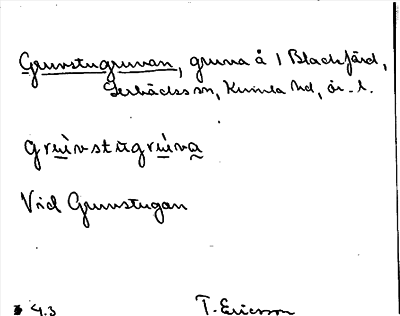 Gruvstugruvan, gruva å 1 Blackfärd,
Gerbäcks sn, Kumla hd, ör. l.
grùvstugrùva
Vid Gruvstugan
4.3 T. Ericsson